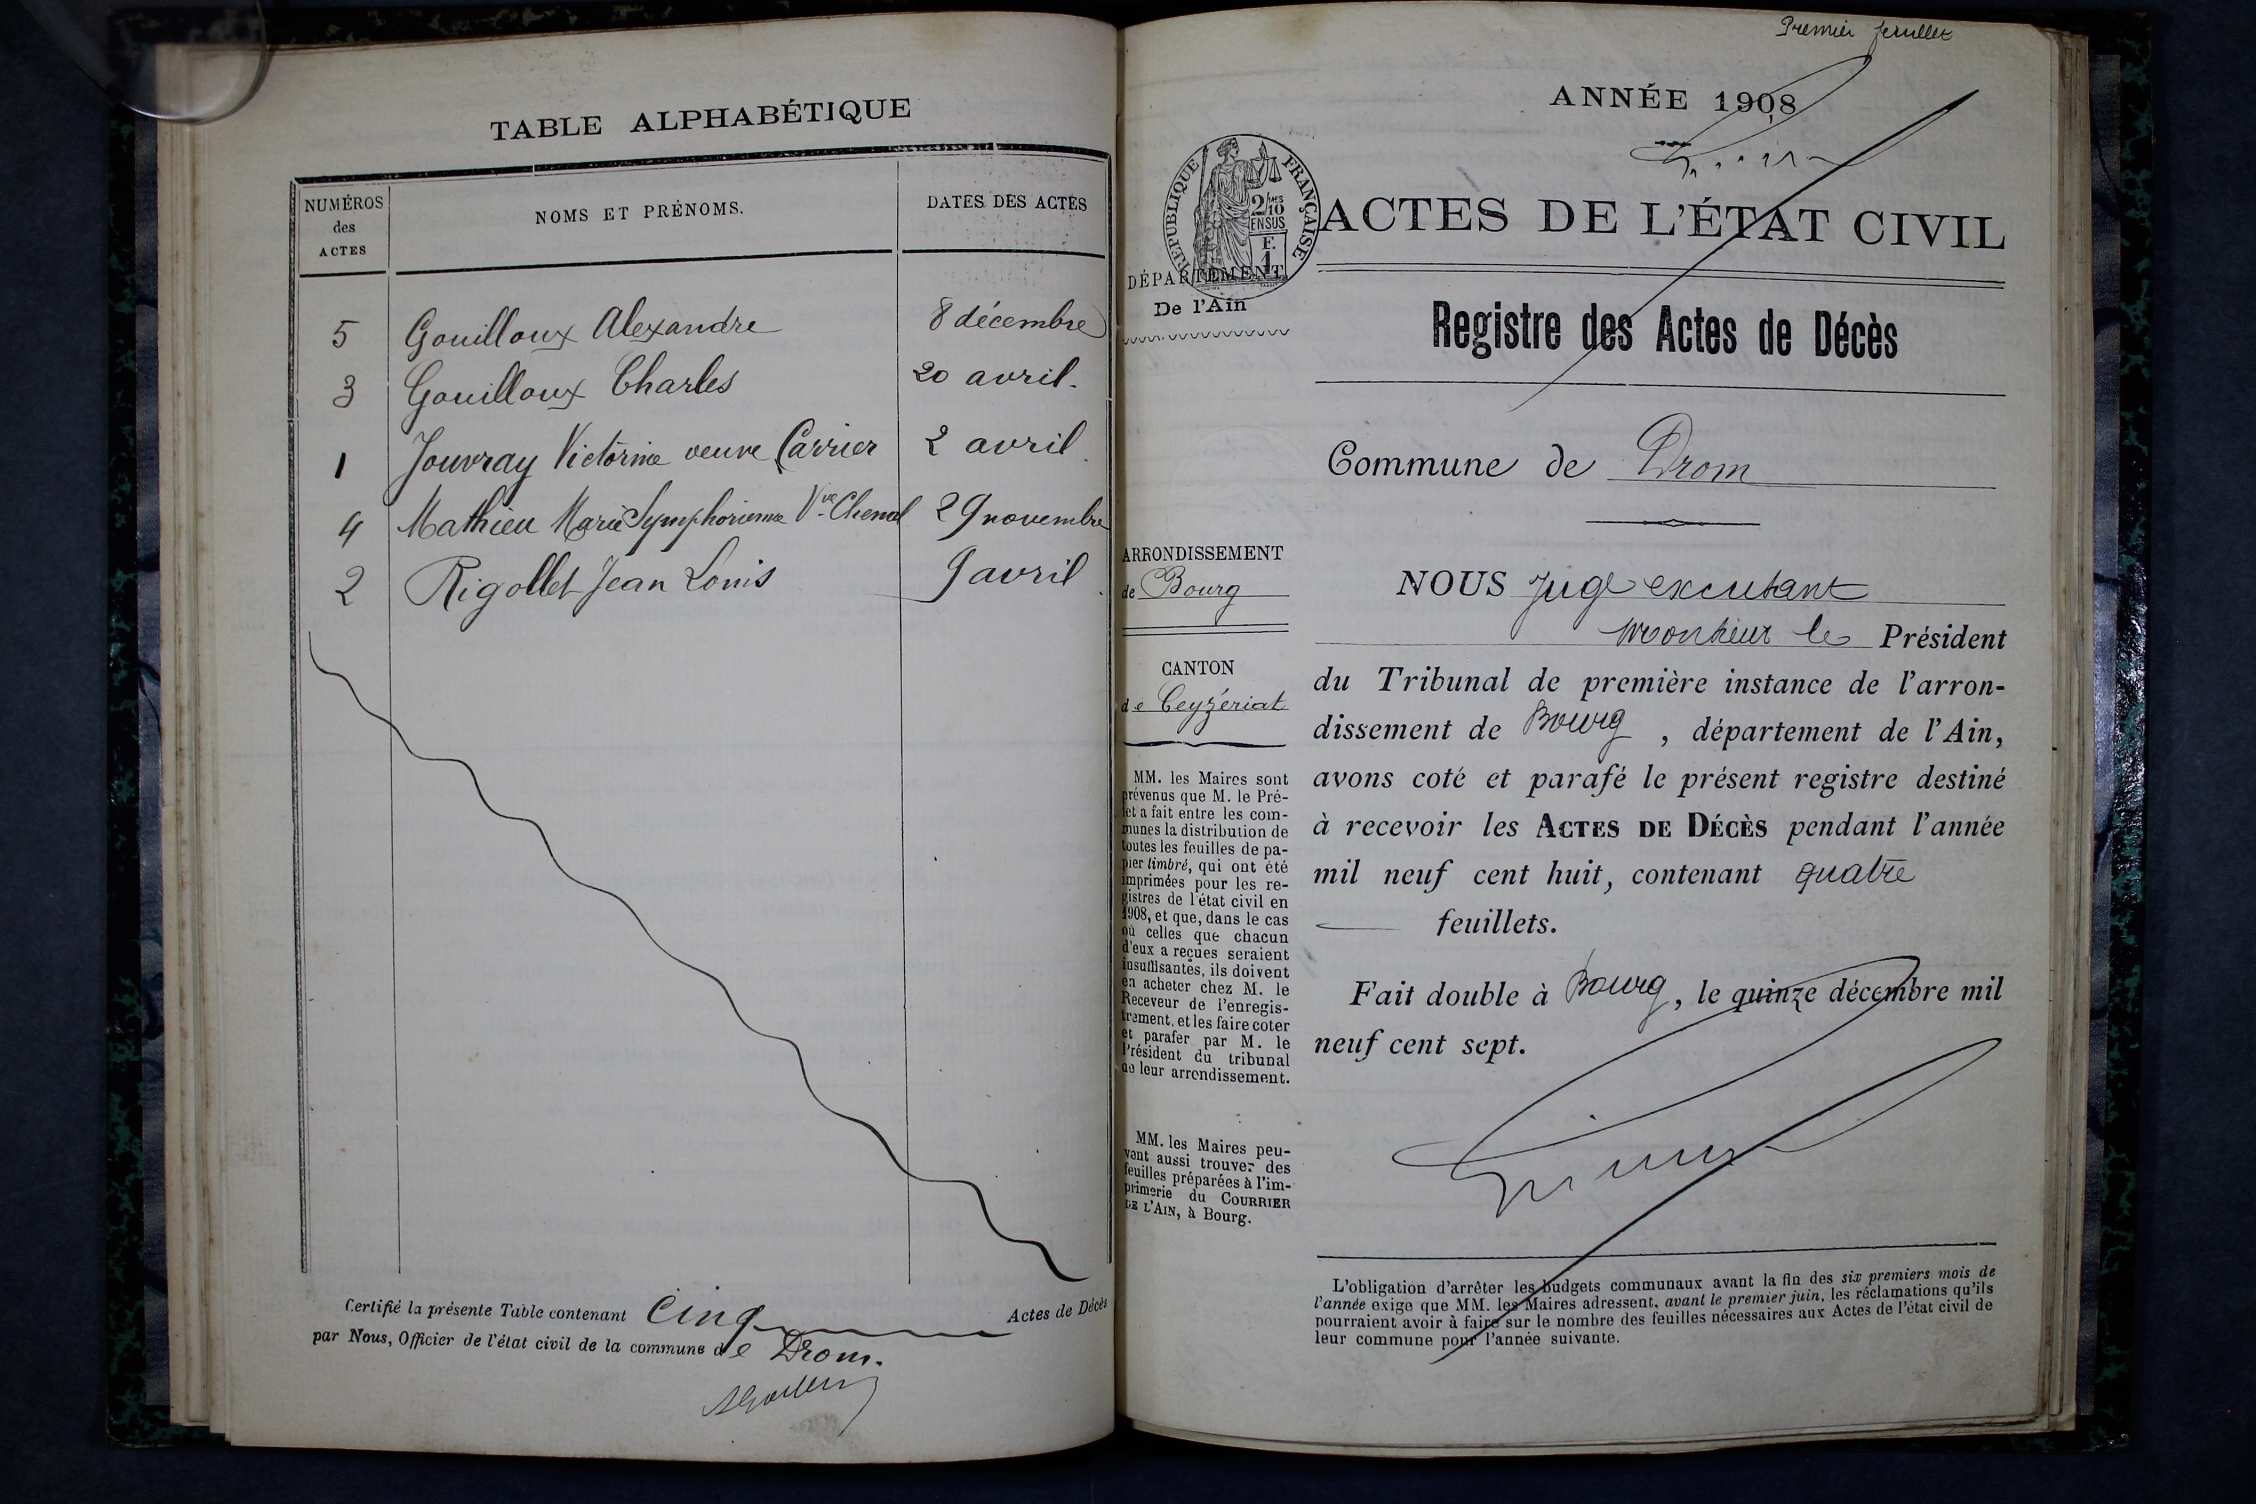 TABLE ALPHABÉTIQUE
NUMÉROS
des
ACTES
NOMS ET PRÉNOMS.
DATES DES ACTES
5 Gouilloux Alexandre 8 décembre
3 Gouilloux Charles 20 avril.
1 Jouvray Victorine veuve Carrier 2 avril
4 Mathieu Marie Symphorienne Vve Chenal 29 novembre
2 Rigollet Jean Louis 9 avril
Certifié la présente Table contenant Cinq Actes de Décès
par Nous, Officier de l'état civil de la commune de Drom.
Premier feuillet
ANNÉE 1908
RÉPUBLIQUE FRANÇAISE
2/10
EN SUS
F.
1
ACTES DE L'ÉTAT CIVIL
DÉPARTEMENT
De l'Ain
Registre des Actes de Décès
Commune de Drom
ARRONDISSEMENT
de Bourg
CANTON
de Ceyzériat
MM. les Maires sont
prévenus que M. le Pré-
fet a fait entre les com-
munes la distribution de
toutes les feuilles de pa-
pier timbré, qui ont été
imprimées pour les re-
gistres de l'état civil en
1908, et que, dans le cas
où celles que chacun
d'eux a reçues seraient
insuffisantes, ils doivent
en acheter chez M. le
Receveur de l'enregis-
trement, et les faire coter
et parafer par M. le
Président du tribunal
de leur arrondissement.
MM. les Maires peu-
vent aussi trouver des
feuilles préparées à l'im-
primerie du COURRIER
DE L'AIN, à Bourg.
NOUS Juge excusant
Monsieur le Président
du Tribunal de première instance de l'arron-
dissement de Bourg, département de l'Ain,
avons coté et parafé le présent registre destiné
à recevoir les ACTES DE DÉCÈS pendant l'année
mil neuf cent huit, contenant quatre
feuillets.
Fait double à Bourg, le quinze décembre mil
neuf cent sept.
L'obligation d'arrêter les budgets communaux avant la fin des six premiers mois de
l'année exige que MM. les Maires adressent, avant le premier juin, les réclamations qu'ils
pourraient avoir à faire sur le nombre des feuilles nécessaires aux Actes de l'état civil de
leur commune pour l'année suivante.